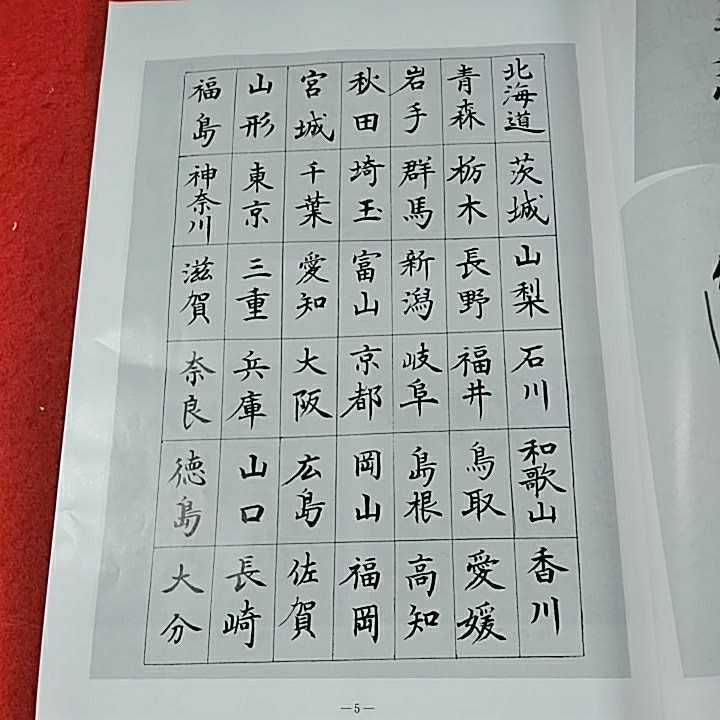 北海道
青森
岩手
秋田
宮城
山形
福島
茨城
栃木
群馬
埼玉
千葉
東京
神奈川
山梨
長野
新潟
富山
愛知
三重
滋賀
石川
福井
岐阜
京都
大阪
兵庫
奈良
和歌山
鳥取
島根
岡山
広島
山口
徳島
香川
愛媛
高知
福岡
佐賀
長崎
大分
—5—